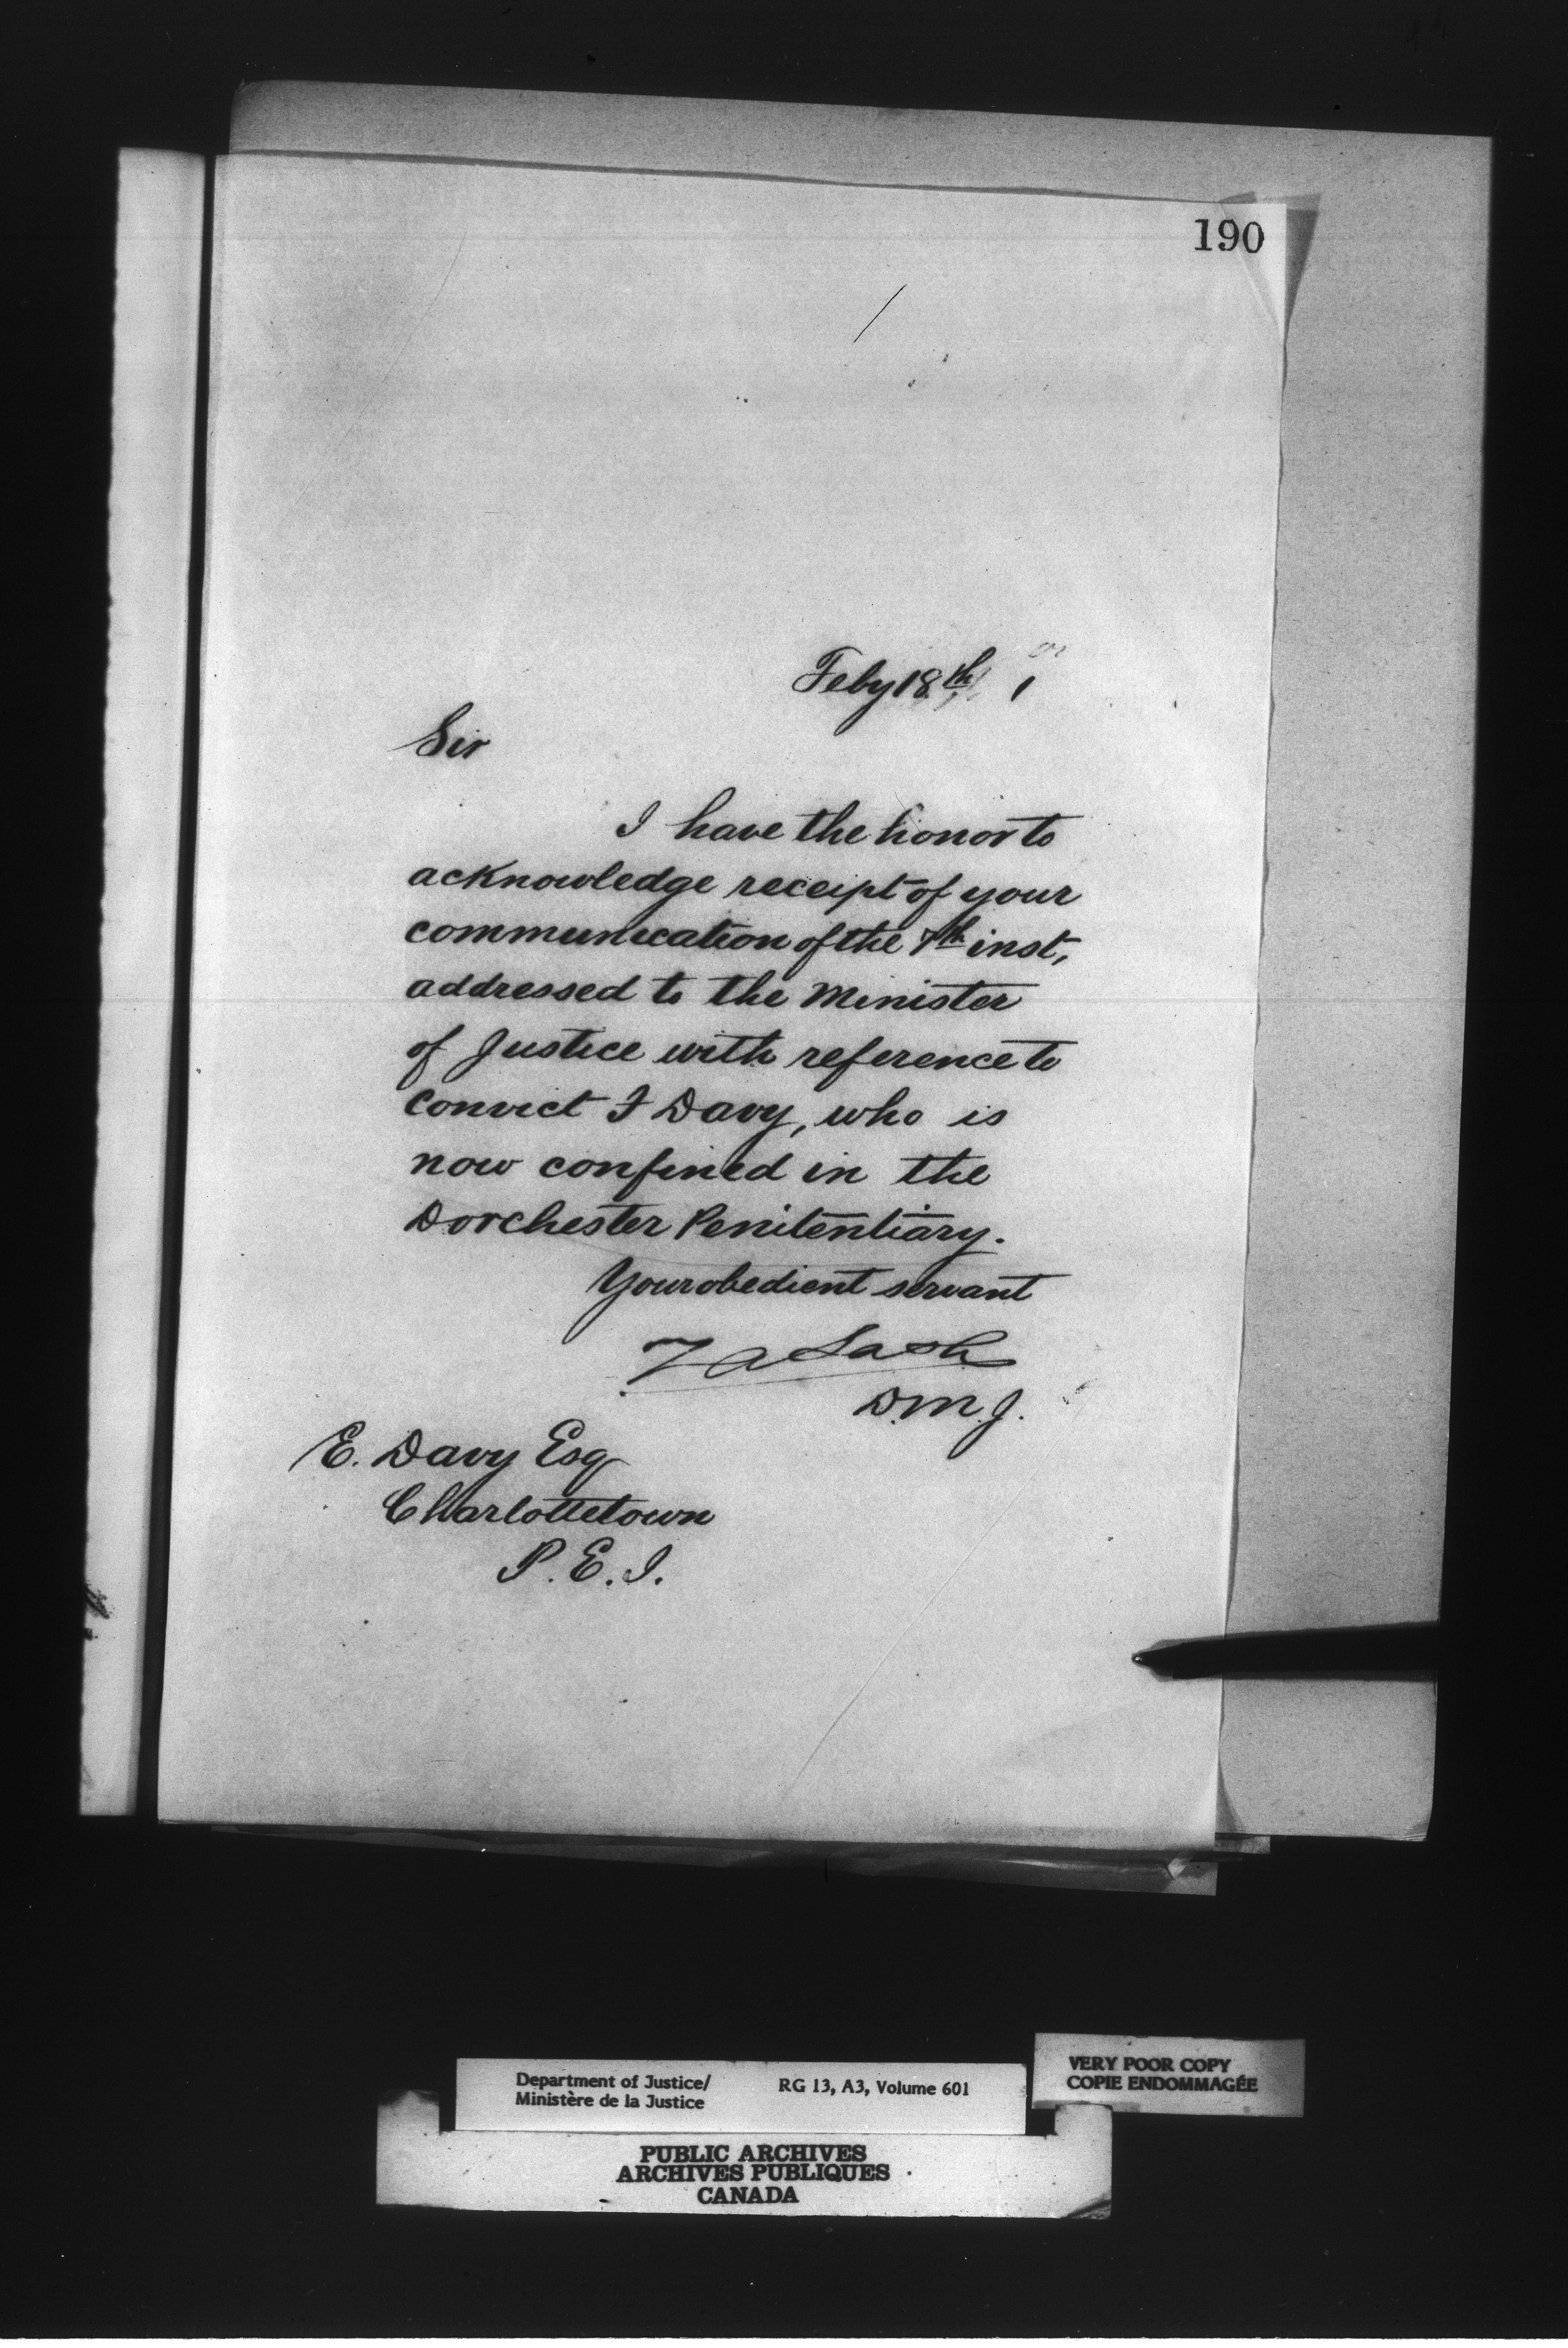 190
Feby 18th 1
Sir
I have the honor to
acknowledge receipt of your
communication of the 7th inst,
addressed to the Minister
of Justice with reference to
convict F Davy, who is
now confined in the
Dorchester Penitentiary.
Your obedient servant
Z A Lash
D.M.J.
E. Davy Esq
Charlottetown
P.E.I.
Department of Justice/
Ministère de la Justice
RG 13, A3, Volume 601
VERY POOR COPY
COPIE ENDOMMAGÉE
PUBLIC ARCHIVES
ARCHIVES PUBLIQUES
CANADA